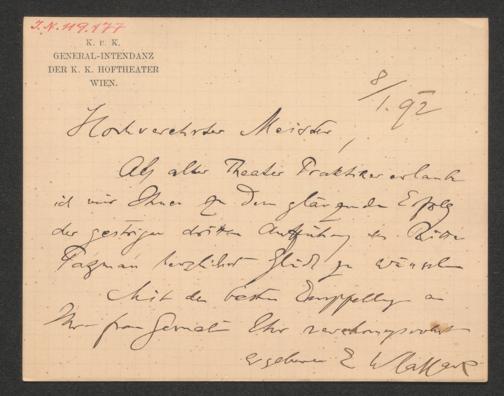 I.N. 119.177
K. u. K.
GENERAL-INTENDANZ
DER K. K. HOFTHEATER
WIEN.
8/1. 92
Hochverehrter Meister,
Als alter Theater Praktiker erlaube
ich mir Ihnen zu dem glänzenden Erfolg
der gestrigen dritten Aufführung des Ritter
Pázmán herzlichst Glück zu wünschen
Mit den besten Empfehlungen an
Ihre frau Gemalin Ihr verehrungsvollst
ergebener E Wlassack